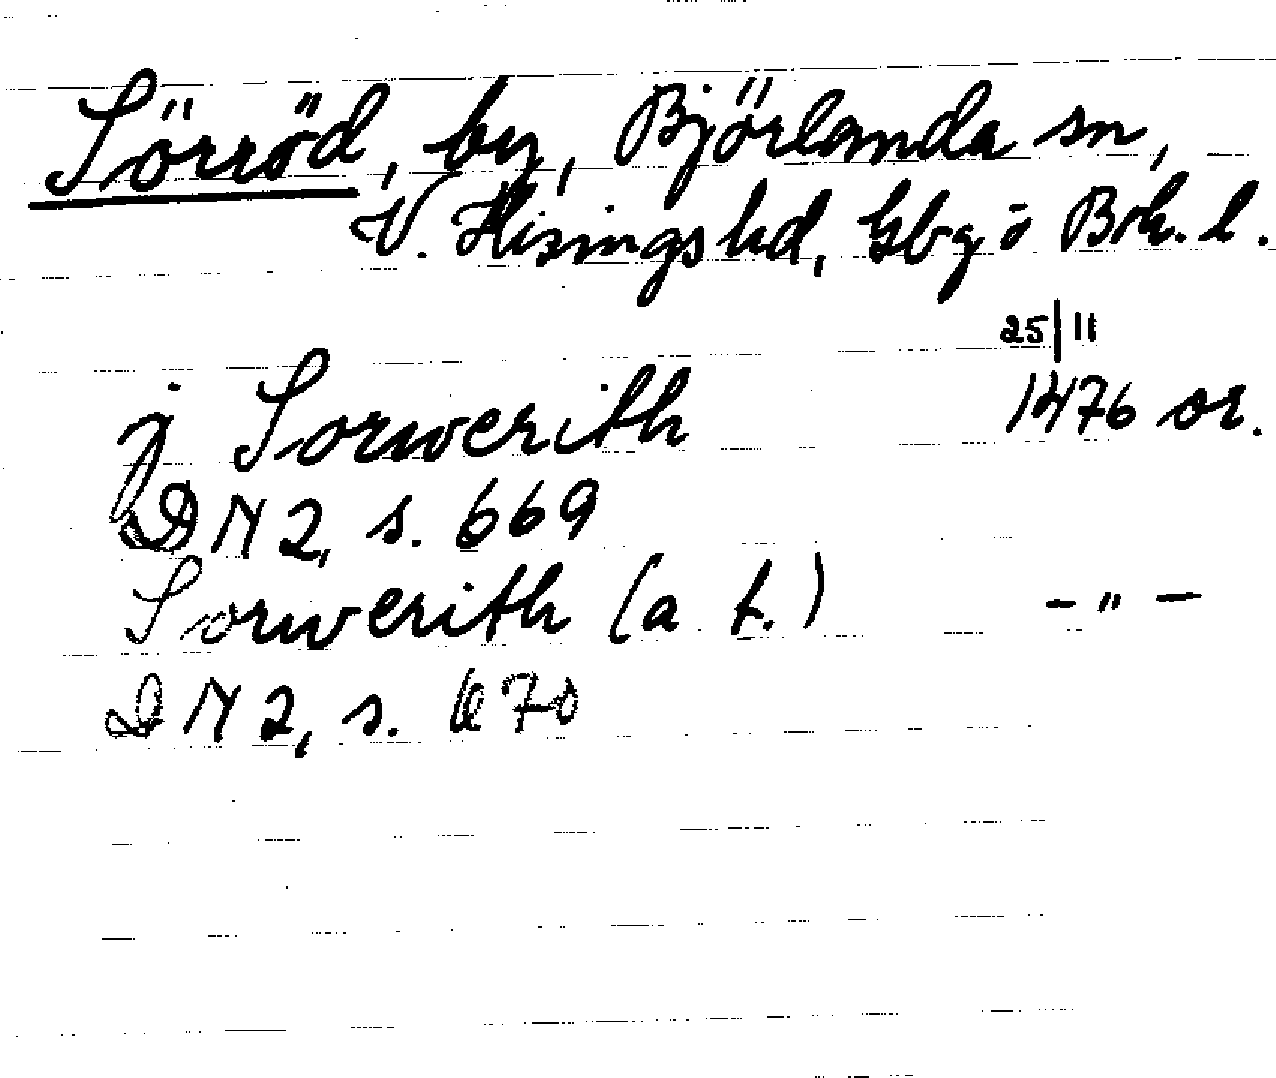 Sörröd, by, Björlanda sn,
V. Hisings hd, Gbg o Boh. l.
25/11
j Sorwerith 1476 or.
DN 2, s. 669
Sorwerith (a t.) - " -
DN 2, s. 670